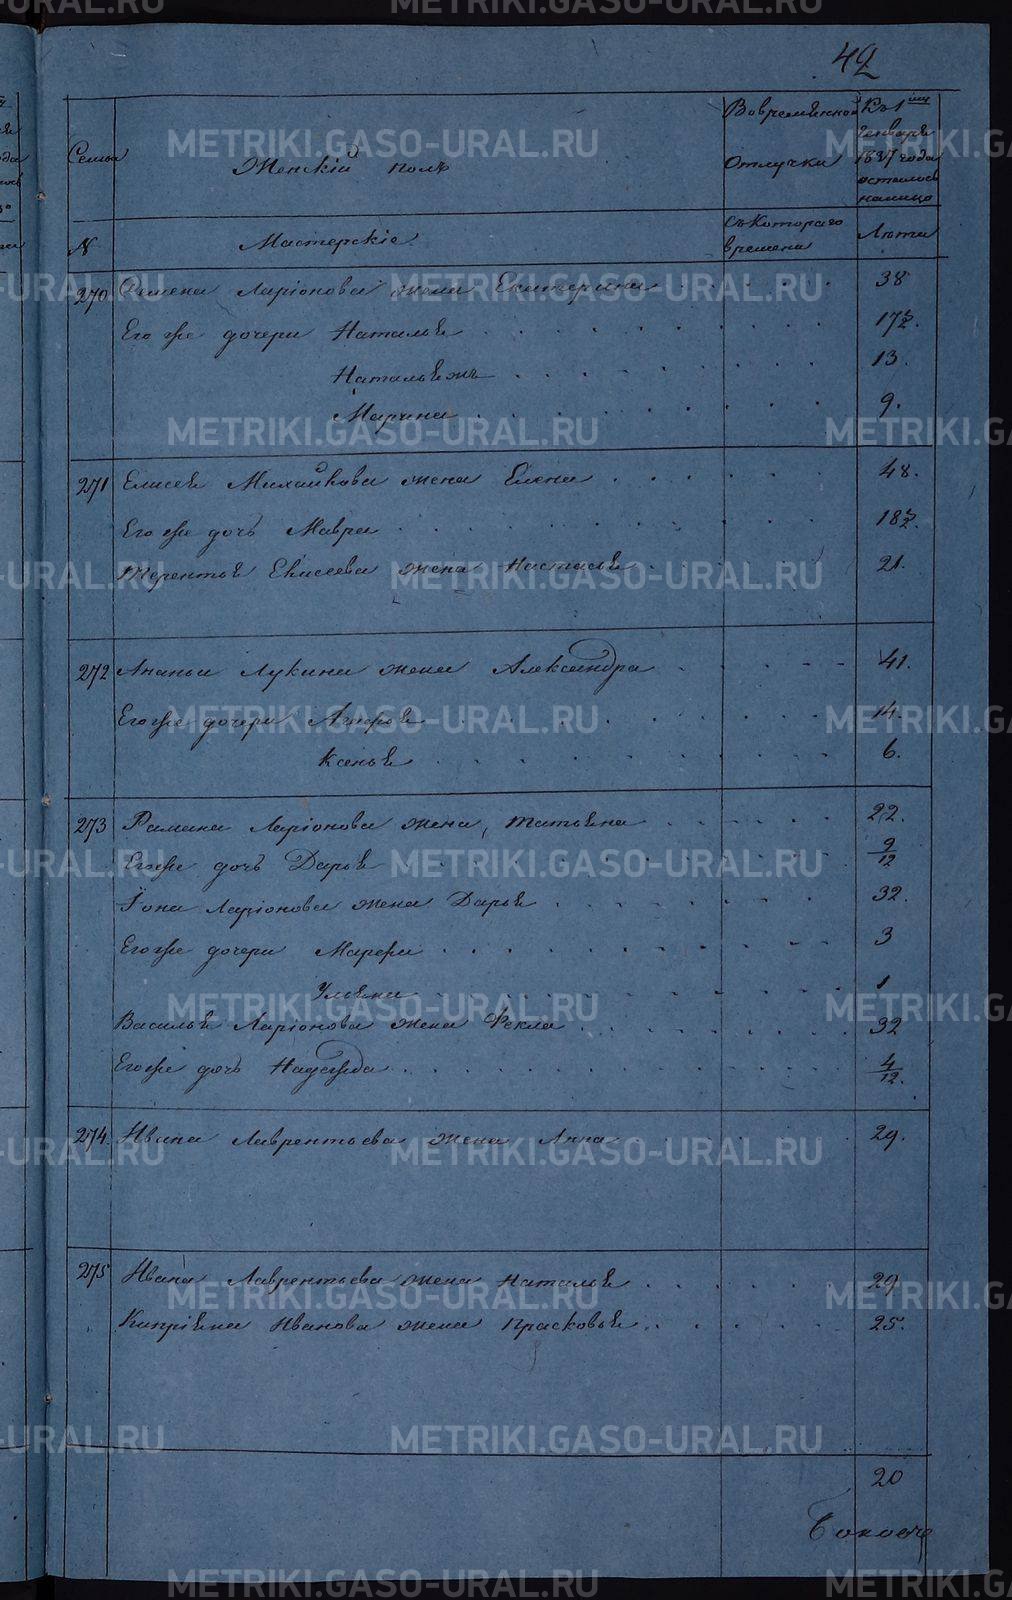 42
Семьи
Женскій полъ
Во временной отлучки
Къ 1му Генваря 1837 года осталось налицо
N
Мастерскіе
Съ котораго времени
Лѣта
270 Семена Ларіонова жена Екатерина 38
Его же дочери Натальѣ 17½.
Натальѣ жъ 13.
Марина 9.
271 Елисеѣ Михайлова жена Елена 48.
Его же дочь Мавра 18½.
Терентьѣ Елисеева жена Настасьѣ 21.
272 Ананьи Лукина жена Александра 41.
Его же дочери 14.
Ксеньѣ 6.
273 Рамана Ларіонова жена Татьѣна 22.
Его же дочь Дарьѣ 9/12
Іона Ларіонова жена Дарьѣ 32.
Его же дочери Марфа 3
Ульѣна 1
Васильѣ Ларіонова жена Фекла 32
Его же дочь Надежда 4/12.
274. Ивана Лаврентьева жена Анна 29.
275 Ивана Лаврентьева жена Натальѣ 29
Кипріѣна Иванова жена Прасковьѣ 25.
20
METRIKI.GASO-URAL.RU